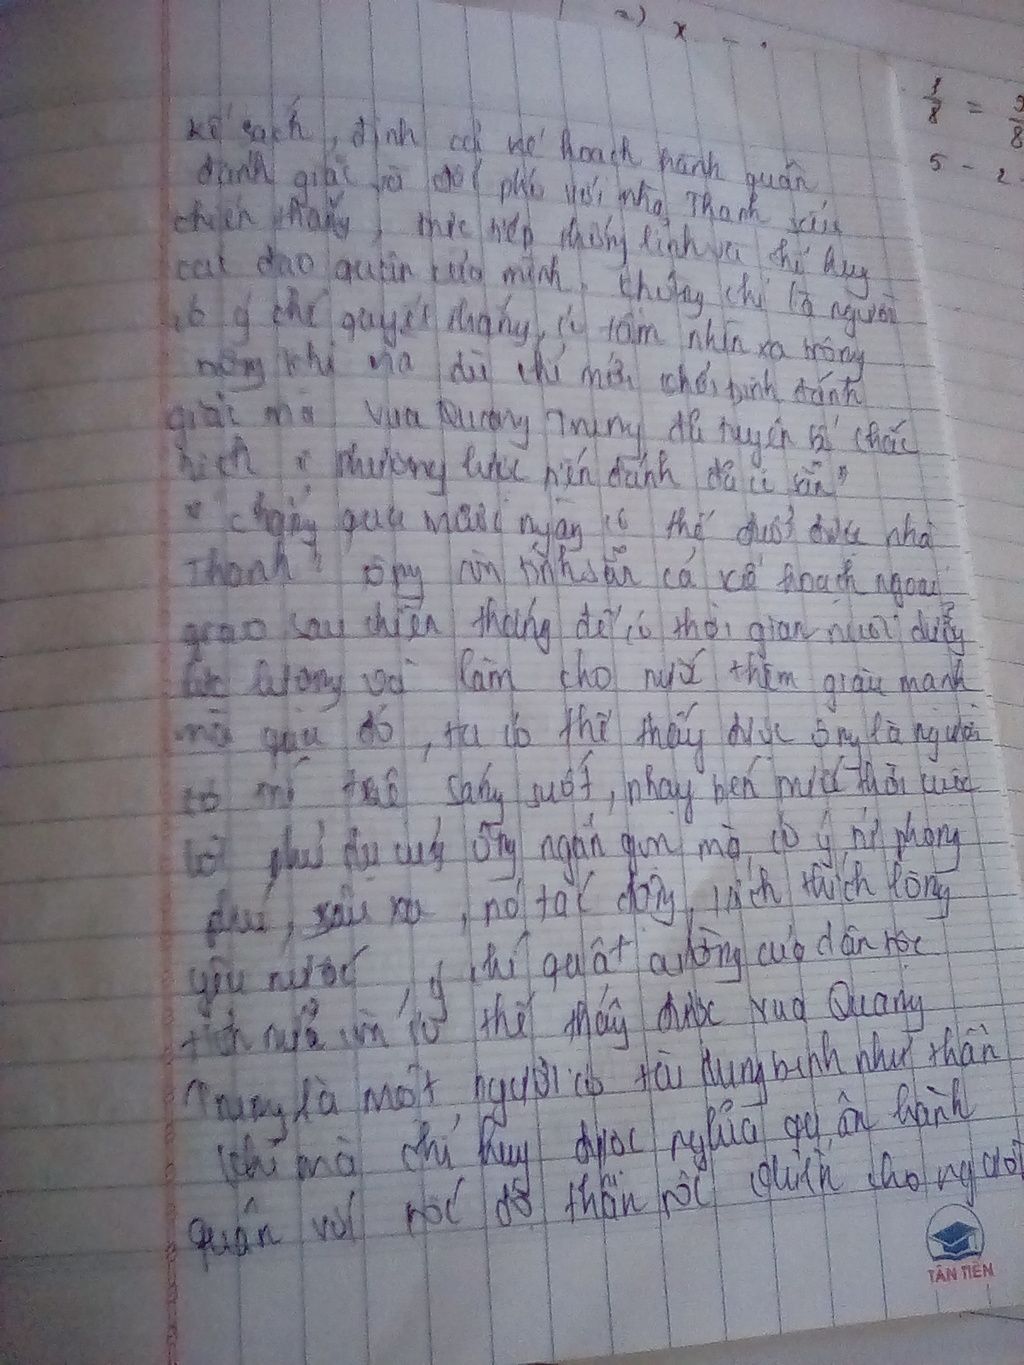 2) x - .
1/8 =
5 - 2
kế sách, định cả kế hoạch hành quân
đánh giặc và đối phó với nhà Thanh sau
chiến thắng, trực tiếp thống lĩnh và chỉ huy
các đạo quân của mình. không chỉ là người
có ý chí quyết thắng, có tầm nhìn xa trông
rộng khi mà dù chỉ mới khởi binh đánh
giặc mà vua Quang Trung đã tuyên bố chắc
nịch " phương lược tiến đánh đã có sẵn"
" chẳng qua mười ngày có thể đuổi được nhà
Thanh" ông còn tính sẵn cả kế hoạch ngoại
giao sau chiến thắng để có thời gian nuôi dưỡng
lực lượng và làm cho nước thêm giàu mạnh
qua đó, ta có thể thấy được ông là người
có trí tuệ sáng suốt, nhạy bén thời cuộc
lời phủ dụ của ông ngắn gọn mà có ý tứ phong
phú, sâu xa, nó tác động, kích thích lòng
yêu nước, ý chí quật cường của dân tộc
còn có thể thấy được vua Quang
Trung là một người có tài dụng binh như thần
khi mà chỉ huy được nghĩa quân hành
quân với tốc độ thần tốc khiến cho người
TÂN TIẾN